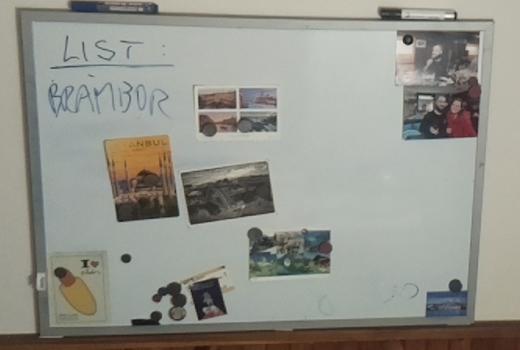 LIST:
BRAMBOR
ANBUL
I